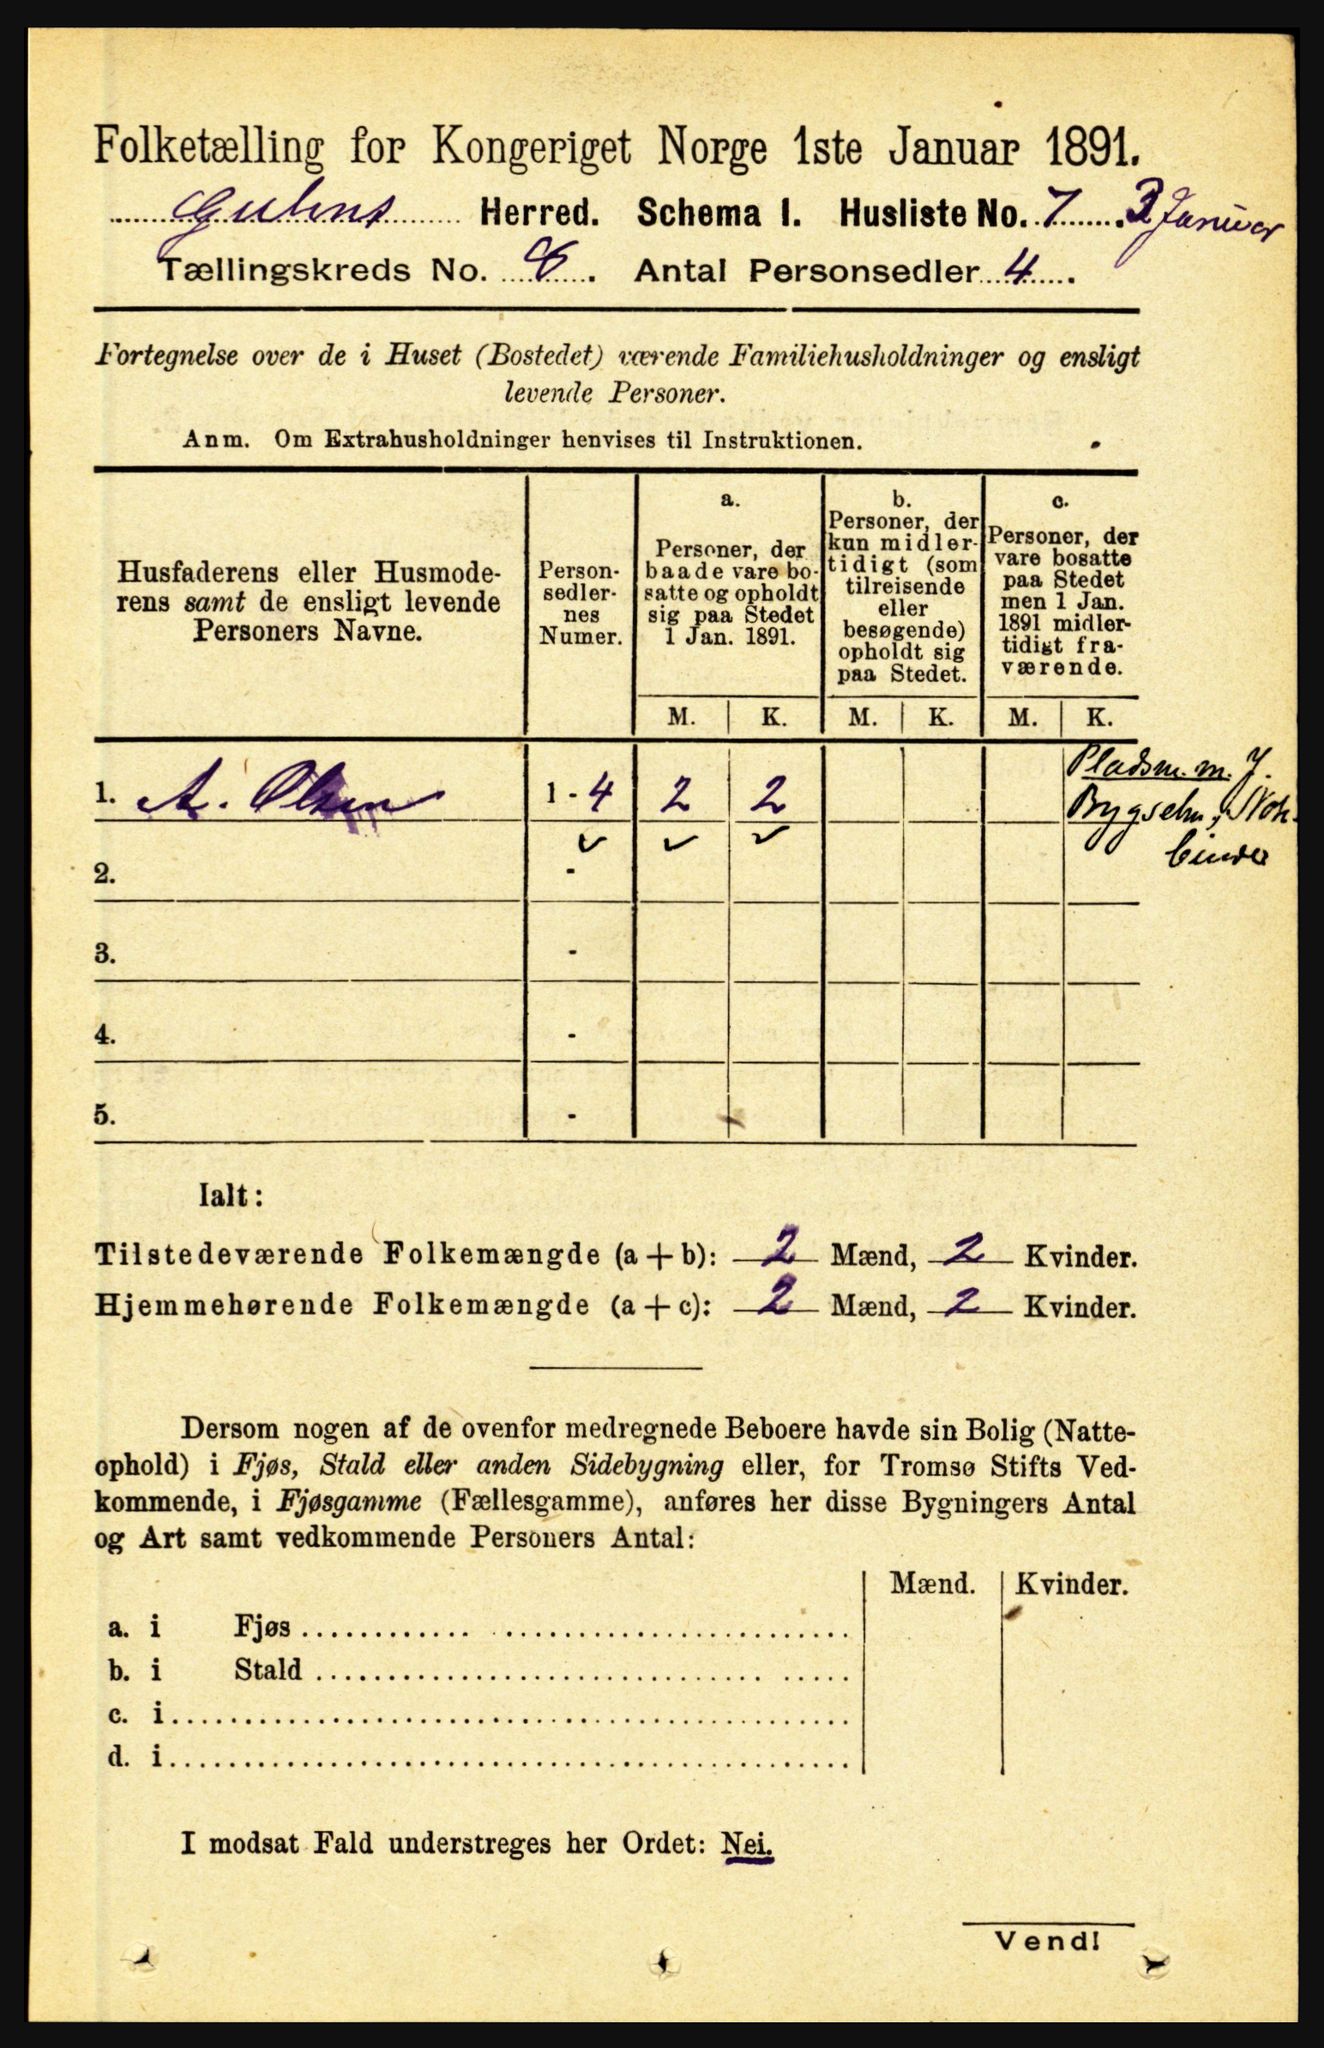 Folketælling for Kongeriget Norge 1ste Januar 1891.
Gulens Herred. Schema I. Husliste No. 7 3 Januar
Tællingskreds No. 8. Antal Personsedler 4.
Fortegnelse over de i Huset (Bostedet) værende Familiehusholdninger og ensligt
levende Personer.
Anm. Om Extrahusholdninger henvises til Instruktionen.
Husfaderens eller Husmode-
rens samt de ensligt levende
Personers Navne.
Person-
sedler-
nes
Numer.
a.
Personer, der
baade vare bo-
satte og opholdt
sig paa Stedet
1 Jan. 1891.
b.
Personer, der
kun midler-
tidigt (som
tilreisende
eller
besøgende)
opholdt sig
paa Stedet.
c.
Personer, der
vare bosatte
paa Stedet
men 1 Jan.
1891 midler-
tidigt fra-
værende.
M. K. M. K. M. K.
1. A. Olsen 1 - 4 2 2
Pladsm. m. J.
Bygselm, Not-
binder
2. -
3. -
4. -
5. -
Ialt:
Tilstedeværende Folkemængde (a + b): 2 Mænd, 2 Kvinder.
Hjemmehørende Folkemængde (a + c): 2 Mænd, 2 Kvinder.
Dersom nogen af de ovenfor medregnede Beboere havde sin Bolig (Natte-
ophold) i Fjøs, Stald eller anden Sidebygning eller, for Tromsø Stifts Ved-
kommende, i Fjøsgamme (Fællesgamme), anføres her disse Bygningers Antal
og Art samt vedkommende Personers Antal:
Mænd. Kvinder.
a. i Fjøs
b. i Stald
c. i
d. i
I modsat Fald understreges her Ordet: Nei.
Vend!